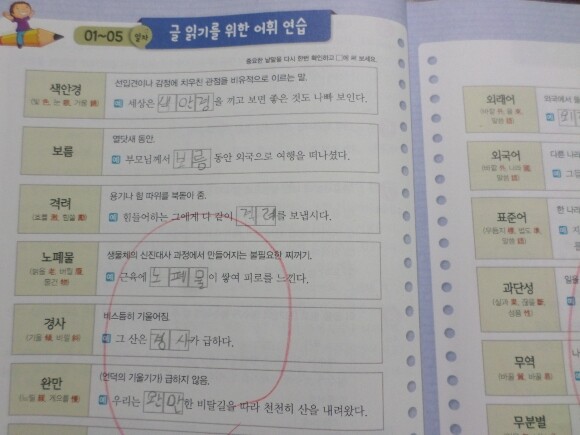 01~05 일차 글 읽기를 위한 어휘 연습
중요한 낱말을 다시 한번 확인하고 □에 써 보세요.
색안경
(빛 色, 눈 眼, 거울 鏡)
선입견이나 감정에 치우친 관점을 비유적으로 이르는 말.
예 세상은 색안경을 끼고 보면 좋은 것도 나빠 보인다.
보름
열닷새 동안.
예 부모님께서 보름 동안 외국으로 여행을 떠나셨다.
격려
(격할 激, 힘쓸 勵)
용기나 힘 따위를 북돋아 줌.
예 힘들어하는 그에게 다 같이 격려를 보냅시다.
노폐물
(늙을 老, 버릴 廢,
물건 物)
생물체의 신진대사 과정에서 만들어지는 불필요한 찌꺼기.
예 근육에 노폐물이 쌓여 피로를 느낀다.
경사
(기울 傾, 비낄 斜)
비스듬히 기울어짐.
예 그 산은 경사가 급하다.
완만
(느릴 緩, 게으를 慢)
(언덕의 기울기가) 급하지 않음.
예 우리는 완만한 비탈길을 따라 천천히 산을 내려왔다.
외래어
말씀 語)
외국에서 들
외국어
(바깥 外, 나라 國,
말씀 語)
다른 나라
예 그
표준어
말씀 語)
예 지
과단성
(실과 果, 끊을 斷,
성품 性)
일을
무역
(바꿀 貿, 바꿀 易)
나
무분별